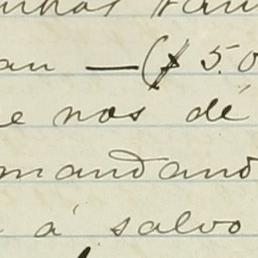 an — ($5.0
e nos dé
mandando
á salvo